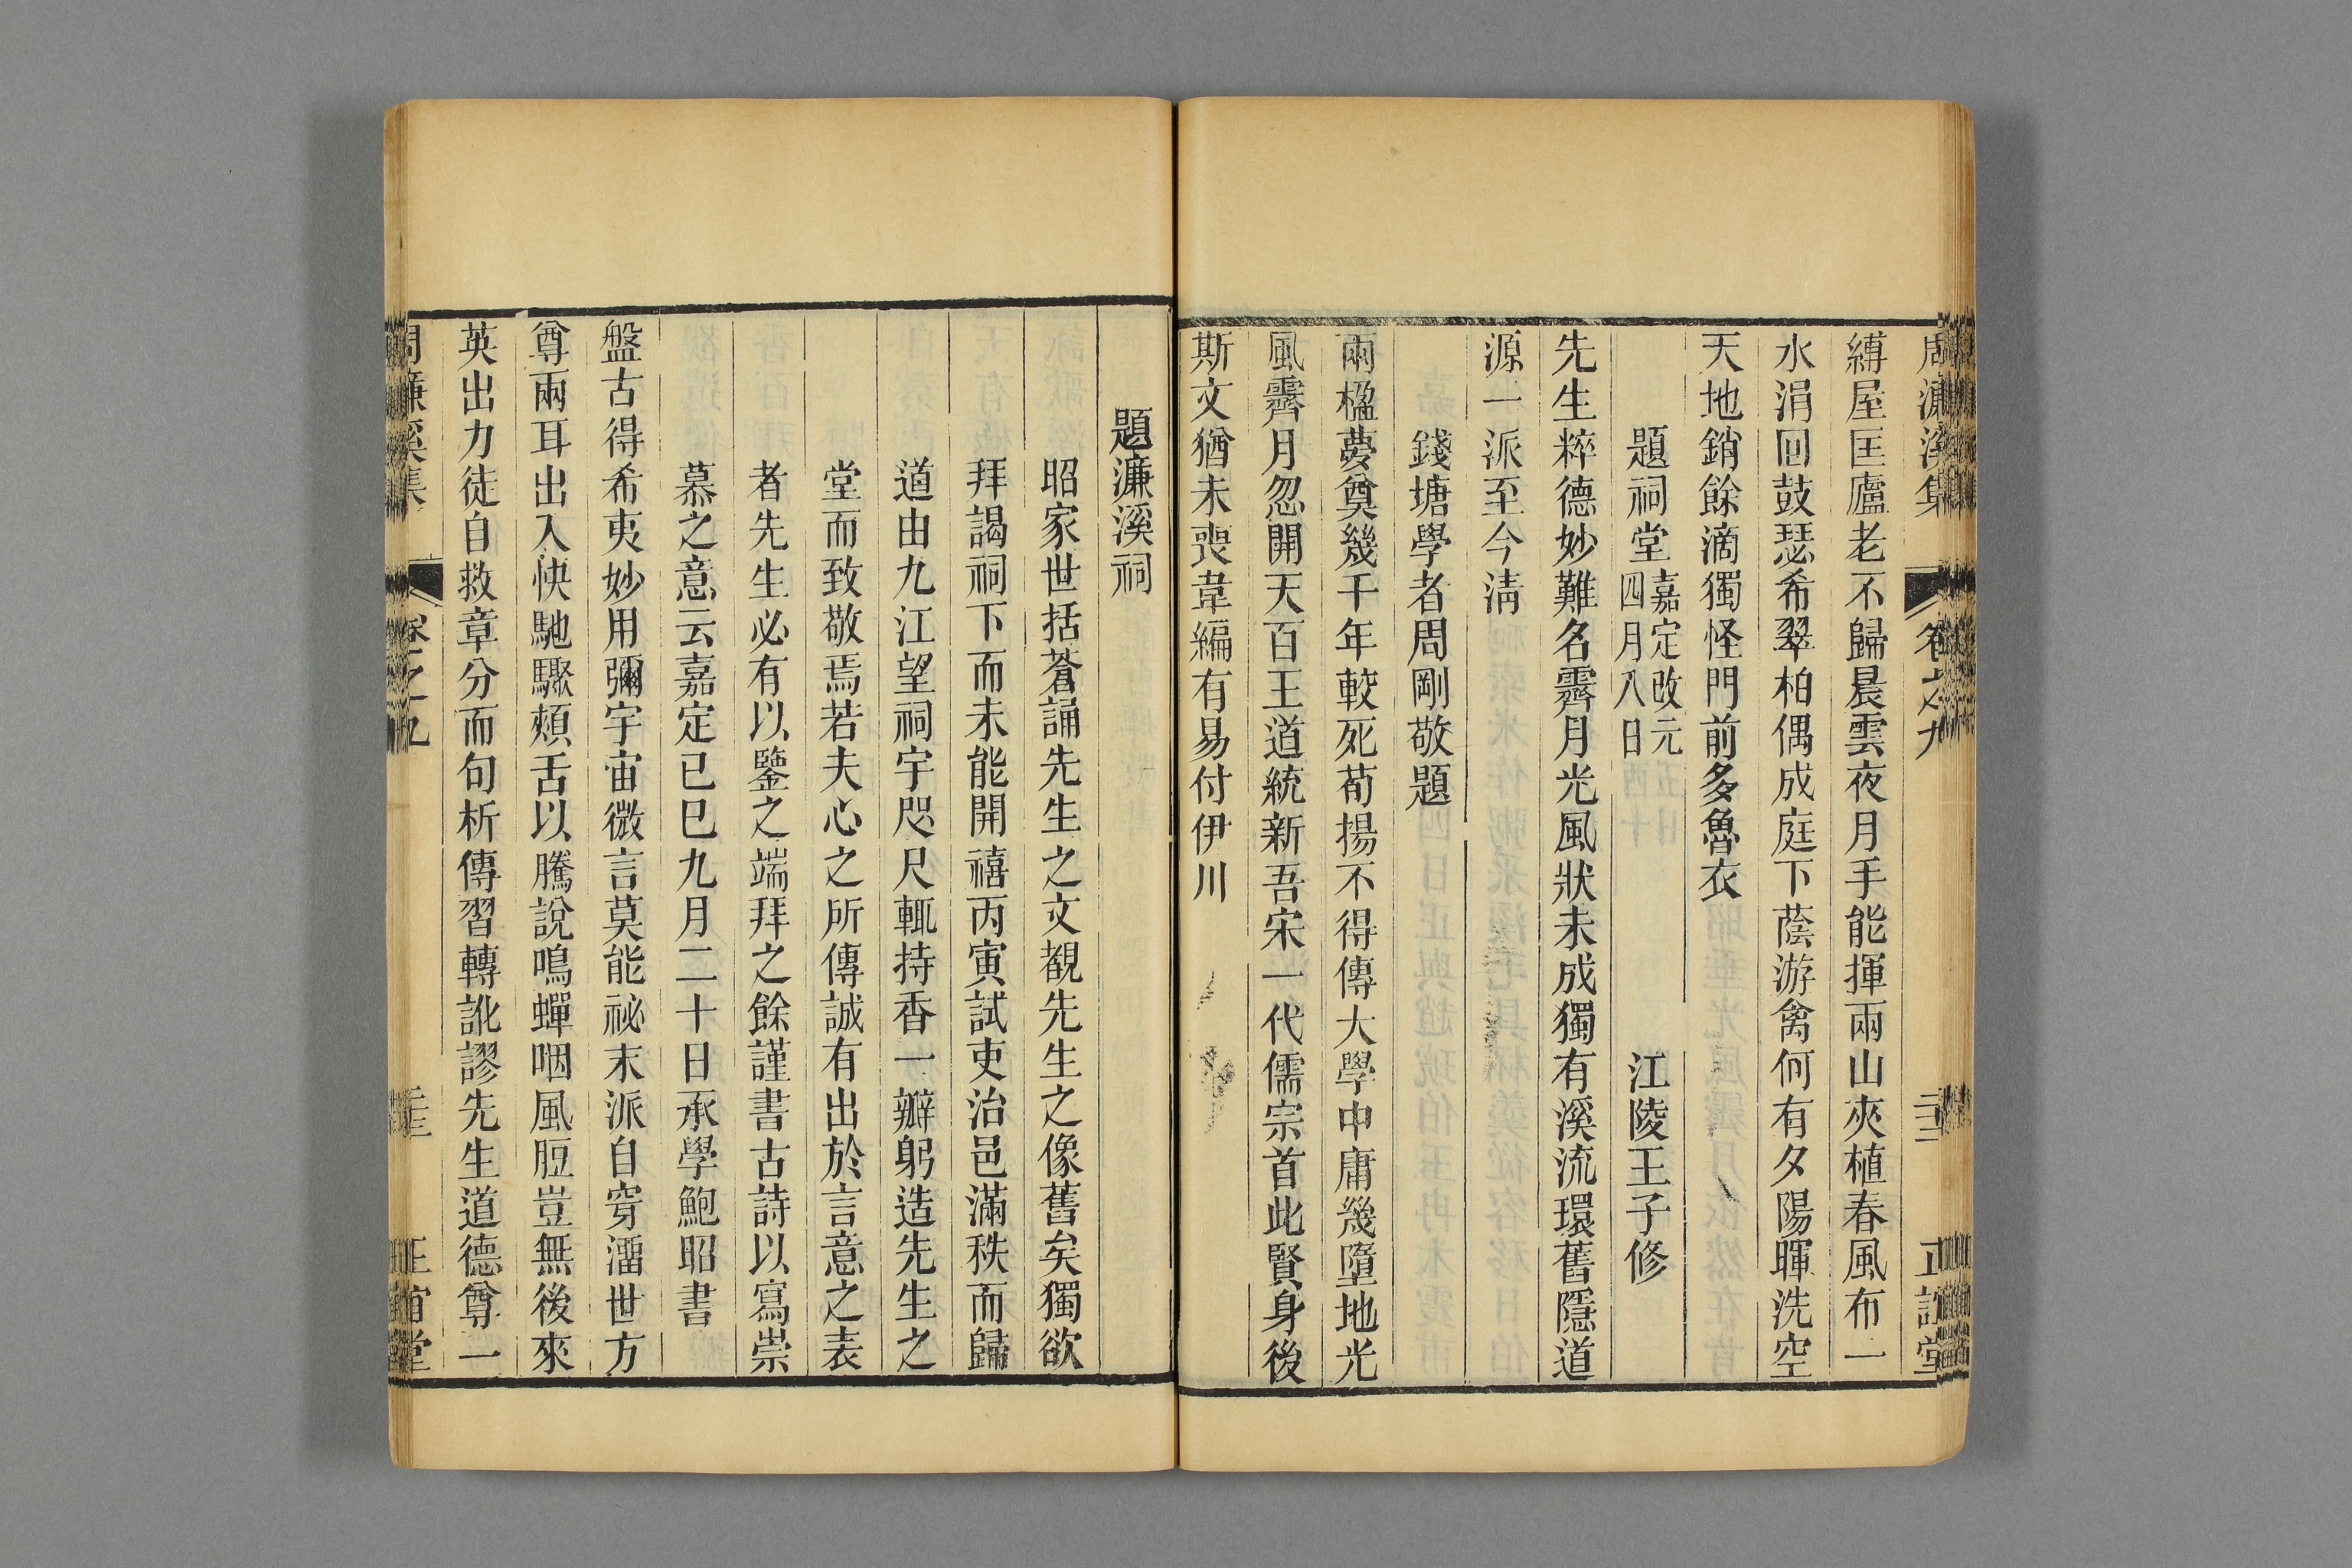 周濂溪集 卷之九 正誼堂
縛屋匡廬老不歸晨雲夜月手能揮兩山夾植春風布一
水涓回鼓瑟希翠柏偶成庭下蔭游禽何有夕陽暉洗空
天地銷餘滴獨怪門前多魯衣
題祠堂嘉定改元四月八日 江陵王子修
先生粹德妙難名霽月光風狀未成獨有溪流環舊隱道
源一派至今淸
錢塘學者周剛敬題
兩楹夢奠幾千年較死荀揚不得傳大學中庸幾墮地光
風霽月忽開天百王道統新吾宋一代儒宗首此賢身後
斯文猶未喪韋編有易付伊川
題濂溪祠
昭家世括蒼誦先生之文觀先生之像舊矣獨欲
拜謁祠下而未能開禧丙寅試吏治邑滿秩而歸
道由九江望祠宇咫尺輒持香一瓣躬造先生之
堂而致敬焉若夫心之所傳誠有出於言意之表
者先生必有以鑒之端拜之餘謹書古詩以寫崇
慕之意云嘉定已巳九月二十日承學鮑昭書
盤古得希夷妙用彌宇宙微言莫能祕末派自穿溜世方
尊兩耳出入快馳驟頰舌以騰說鳴蟬咽風脰豈無後來
英出力徒自救章分而句析傳習轉訛謬先生道德尊一
周濂溪集 卷之九 正誼堂